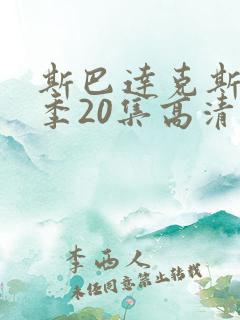 斯巴达克斯
季20集高清
李西人
未经同意禁止转载